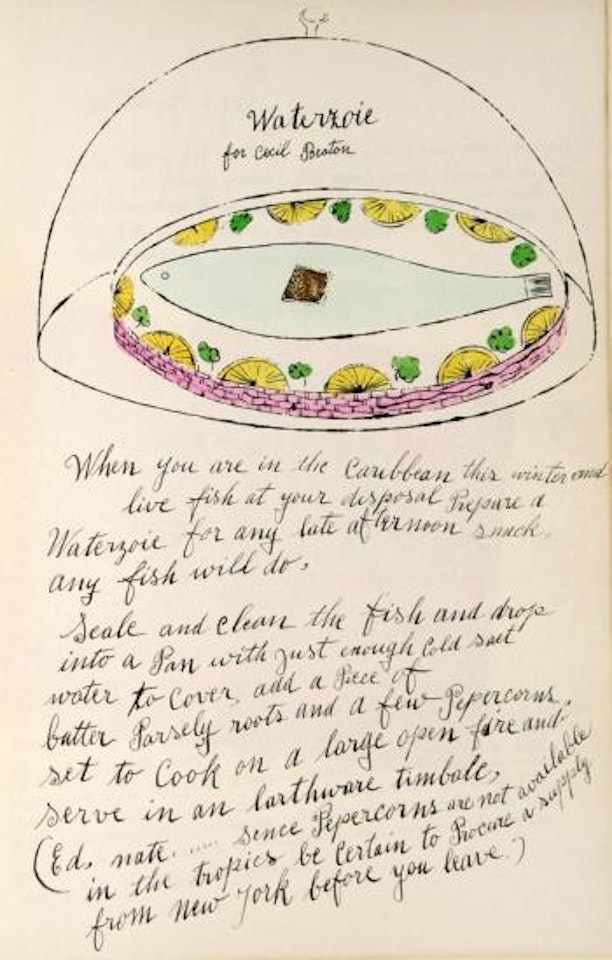 Waterzoie
for Cecil Beaton
When you are in the Caribbean this winter and
live fish at your disposal Prepare a
Waterzoie for any late afternoon snack.
any fish will do.
Scale and clean the fish and drop
into a Pan with just enough Cold salt
water to cover, add a Piece of
butter Parsely roots and a few Pepercorns,
set to Cook on a large open fire and
serve in an Earthware timbale,
(Ed. nate. ..... sence Pepercorns are not available
in the tropics be Certain to Procure a supply
from New York before you leave.)